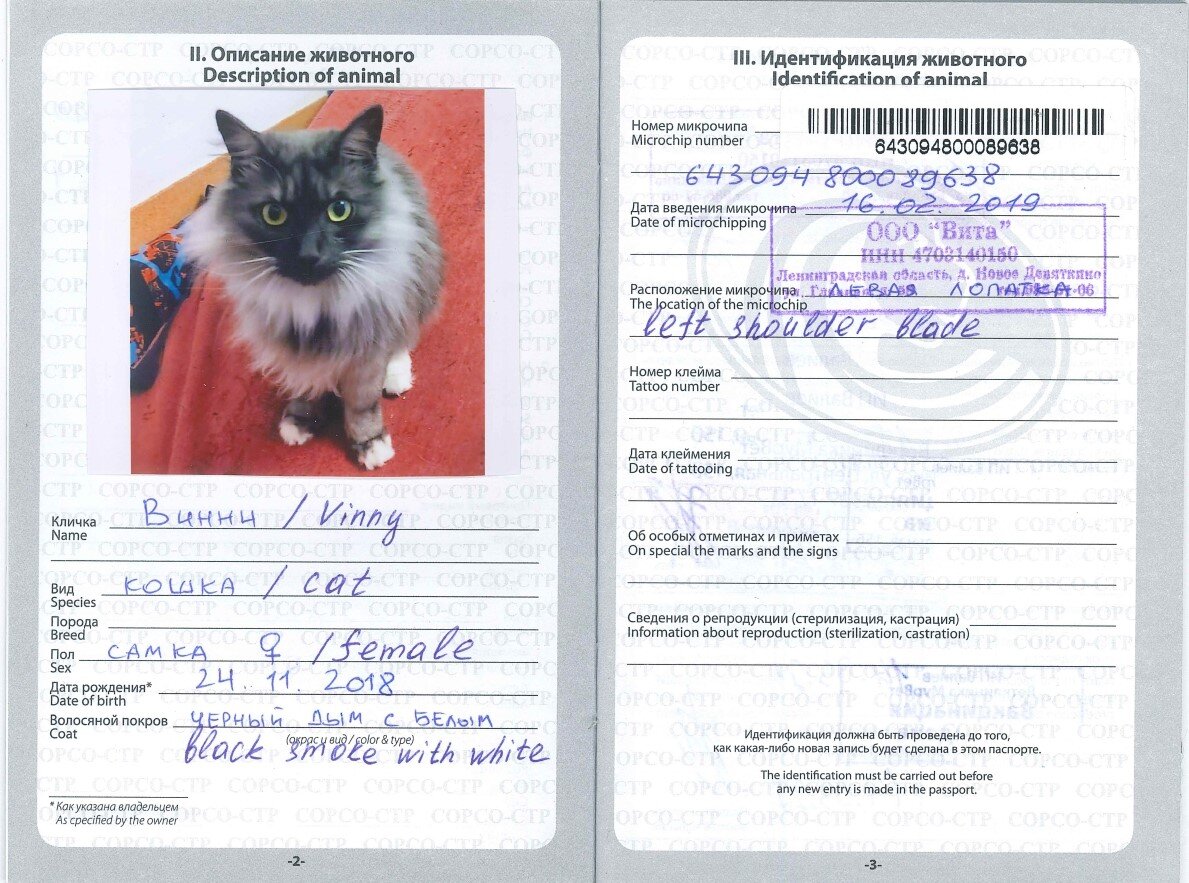 II. Описание животного
Description of animal
Кличка Винни / Vinny
Name
Вид кошка / cat
Species
Порода
Breed
Пол самка ♀ / female
Sex
Дата рождения* 24. 11. 2018
Date of birth
Волосяной покров черный дым с белым
Coat (окрас и вид / color & type)
black smoke with white
* Как указана владельцем
As specified by the owner
-2-
III. Идентификация животного
Identification of animal
Номер микрочипа
Microchip number
643094800089638
643094800089638
Дата введения микрочипа 16. 02. 2019
Date of microchipping
ООО "Вита"
ИНН 4703140150
Ленинградская область, д. Новое Девяткино
Расположение микрочипа ЛЕВАЯ ЛОПАТКА
The location of the microchip
left shoulder blade
Номер клейма
Tattoo number
Дата клеймения
Date of tattooing
Об особых отметинах и приметах
On special the marks and the signs
Сведения о репродукции (стерилизация, кастрация)
Information about reproduction (sterilization, castration)
Идентификация должна быть проведена до того,
как какая-либо новая запись будет сделана в этом паспорте.
The identification must be carried out before
any new entry is made in the passport.
-3-